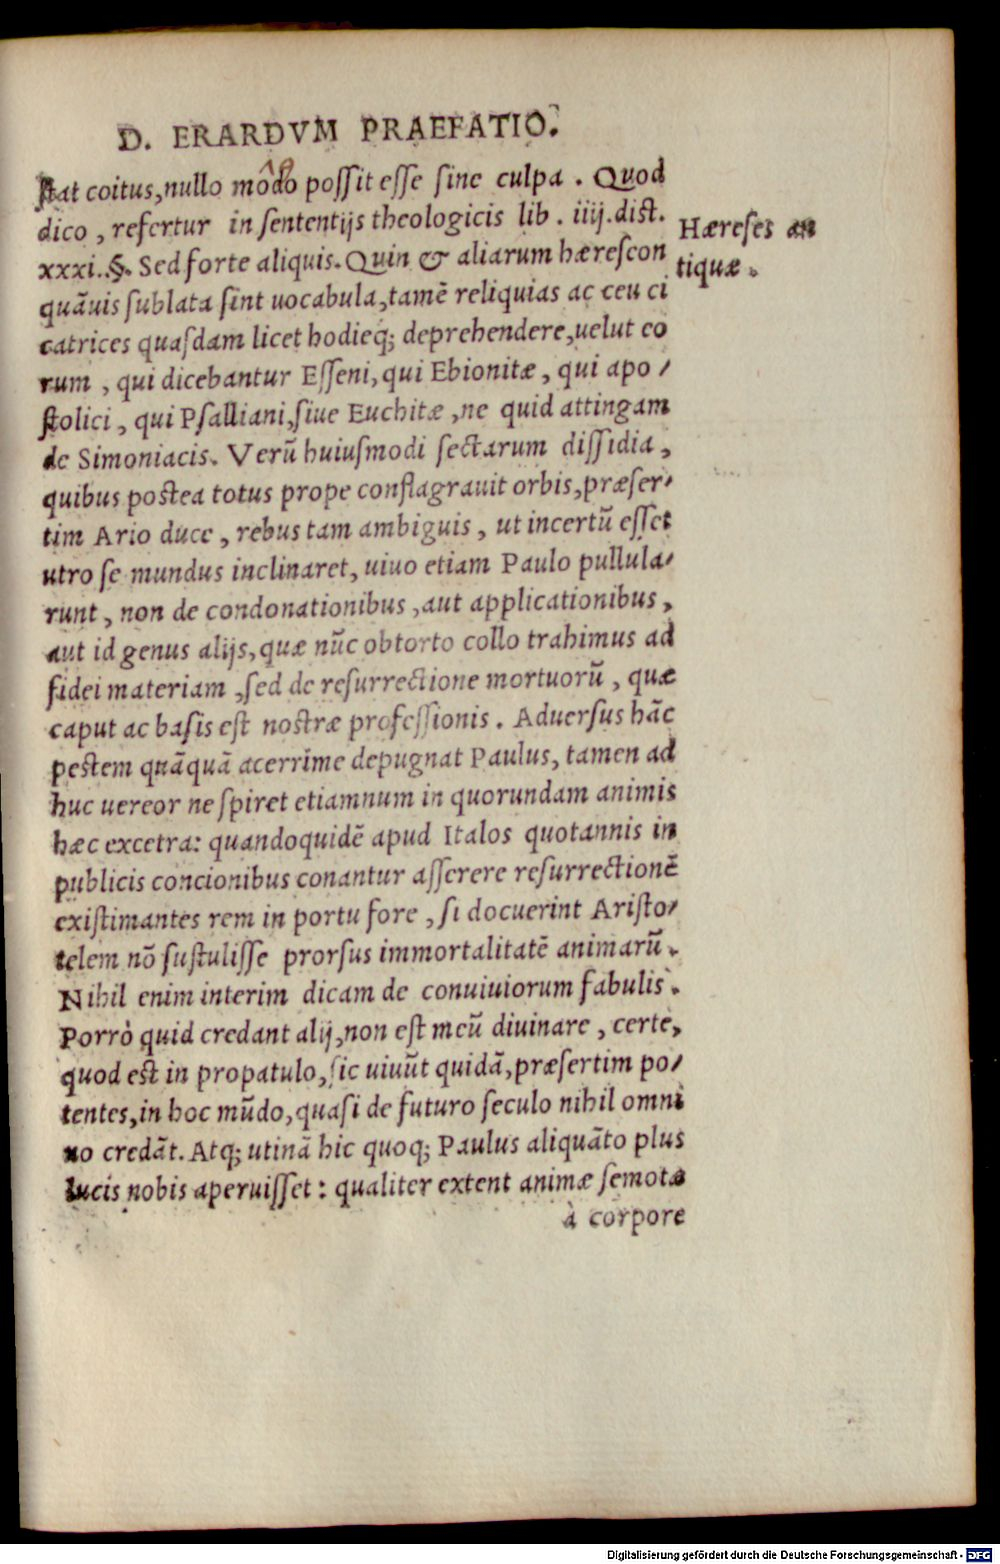 D. ERARDVM PRAEFATIO.
stat coitus, nullo mōdo possit esse sine culpa. Quod
dico, refertur in sententijs theologicis lib. iiij. dist.
xxxi. §. Sed forte aliquis. Quin & aliarum hæreseon
Hæreses an
tiquæ.
quāuis sublata sint uocabula, tamē reliquias ac ceu ci
catrices quasdam licet hodieq; deprehendere, uelut eo
rum, qui dicebantur Esseni, qui Ebionitæ, qui apo/
stolici, qui Psalliani, siue Euchitæ, ne quid attingam
de Simoniacis. Verū huiusmodi sectarum dissidia,
quibus postea totus prope conflagrauit orbis, præser/
tim Ario duce, rebus tam ambiguis, ut incertū esset
utro se mundus inclinaret, uiuo etiam Paulo pullula/
runt, non de condonationibus, aut applicationibus,
aut id genus alijs, quæ nūc obtorto collo trahimus ad
fidei materiam, sed de resurrectione mortuorū, quæ
caput ac basis est nostræ professionis. Aduersus hāc
pestem quāquā acerrime depugnat Paulus, tamen ad
huc uereor ne spiret etiamnum in quorundam animis
hæc excetra: quandoquidē apud Italos quotannis in
publicis concionibus conantur asserere resurrectionē
existimantes rem in portu fore, si docuerint Aristo/
telem nō sustulisse prorsus immortalitatē animarū.
Nihil enim interim dicam de conuiuiorum fabulis.
Porrò quid credant alij, non est meū diuinare, certe,
quod est in propatulo, sic uiuūt quidā, præsertim po/
tentes, in hoc mūdo, quasi de futuro seculo nihil omni
no credāt. Atq; utinā hic quoq; Paulus aliquāto plus
lucis nobis aperuisset: qualiter extent animæ semotæ
à corpore
Digitalisierung gefördert durch die Deutsche Forschungsgemeinschaft - DFG